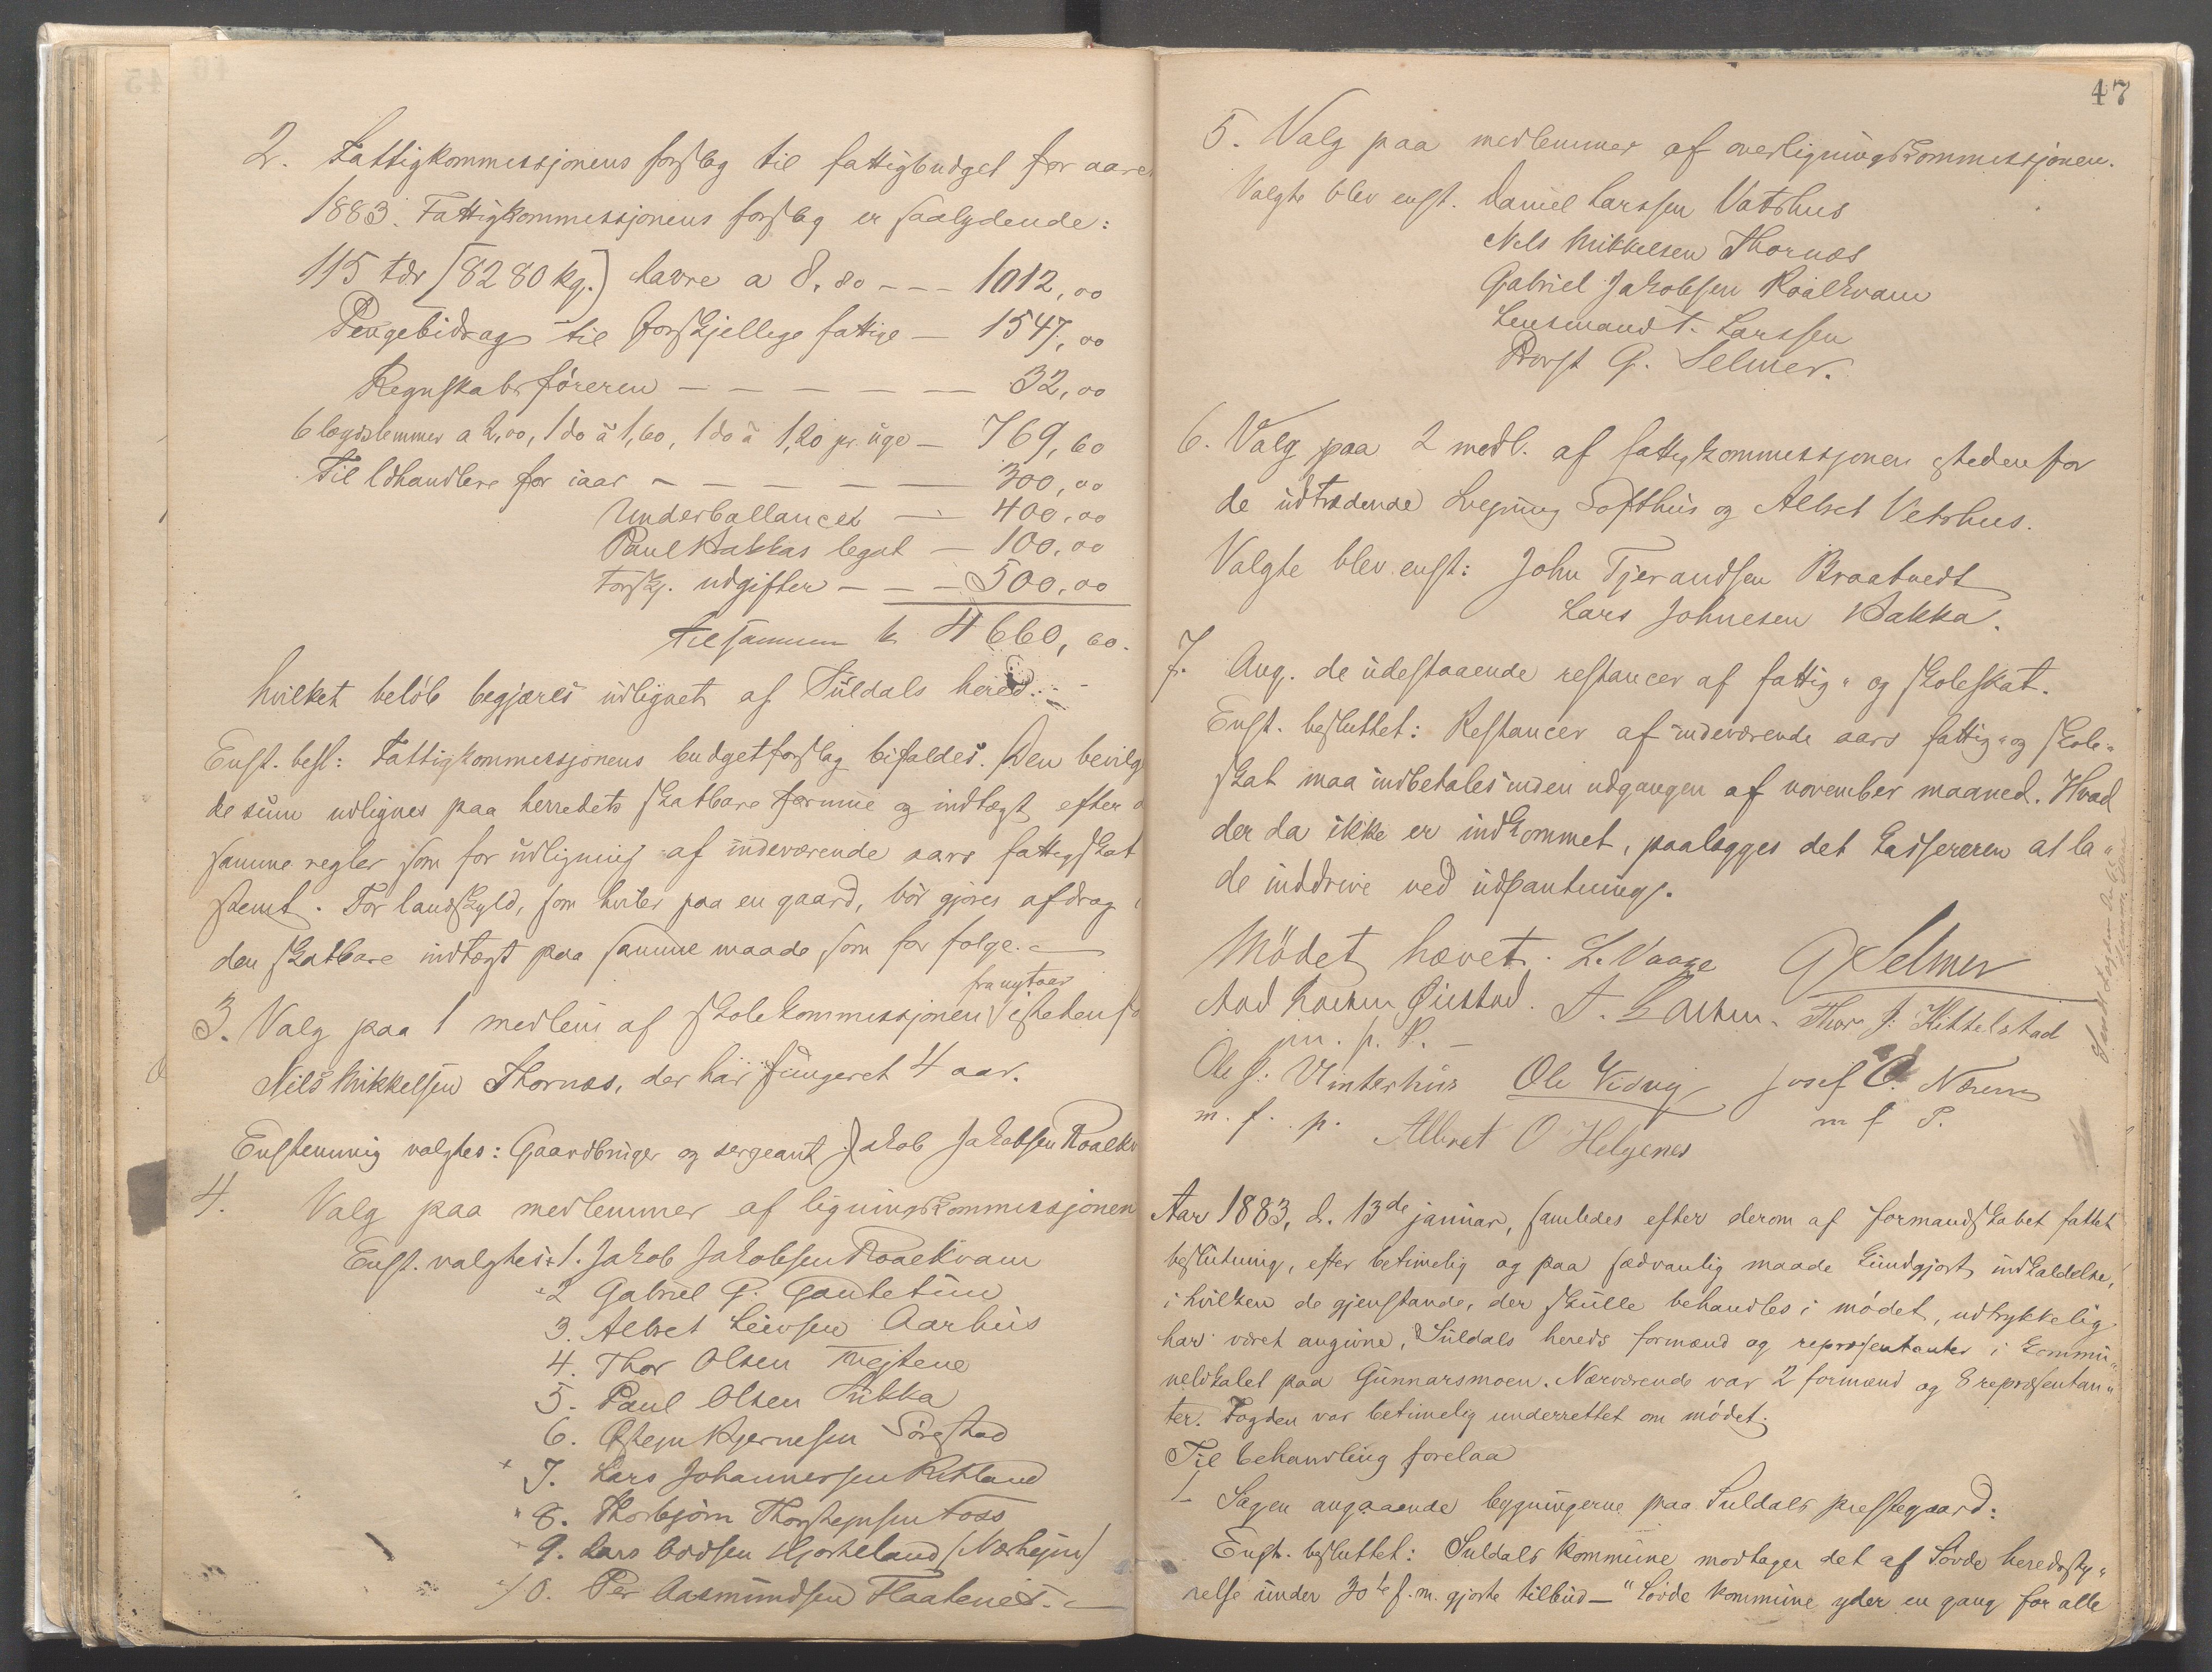 2. Fattigkommissjonens forslag til fattigbudget for aaret
1883. Fattigkommissjonens forslag er saalydende:
115 tdr [8280 kg.] havre a 8,80 --- 1012,00
Pengebidrag til forskjellige fattige — 1547,00
Regnskabsföreren — — — — — 32,00
6 lægdslemmer a 2,00, 1 do à 1,60, 1 do à 1,20 pr. uge — 769,60
Til Udhandlere for iaar — — — — — 300,00
Underballancer — 400,00
Paul Bakkas legat — 100,00
Forskj. udgifter — — — 500,00
tilsammen kr 4660,60.
hvilket belöb begjæres udlignet af Suldals hered.
Enst. besl: Fattigkommissjonens budgetforslag bifaldes. Den bevilg
de sum udlignes paa herredets skatbare formue og indtægt efter
samme regler som for udligning af indeværende aars fattigskat
stemt. For landskyld, som hviler paa en gaard, bör gjöres afdrag i
den skatbare indtægt paa samme maade som for folge.
fra nytaar
3. Valg paa 1 medlem af skolekommissjonen istedenfo
Nils Mikkelsen Thornæs, der har fungeret 4 aar.
Enstemmig valgtes: Gaardbruger og sergeant Jakob Jakobsen Roalkv
4. Valg paa medlemmer af ligningskommissjonen
Enst. valgtes: 1. Jakob Jakobsen Roalkvam
2 Gabriel G. Gautetun
3. Albret Leivsen Aarhus
4. Thor Olsen Vejtene
5. Paul Olsen Bakka
6. Østejn Bjernesen Sörestad
7. Lars Johannessen Ritland
8. Thorbjörn Thorstejnsen Foss
9. Lars Oddsen Hjorteland (Nærhejm)
10. Per Aasmundsen Flaatene.
47
5. Valg paa medlemmer af overligningskommissjonen.
Valgte blev enst. Daniel Larssen Vatshus
Nels Mikkelsen Thornæs
Gabriel Jakobsen Roalkvam
Lensmand T. Larssen
Provst G. Selmer.
6. Valg paa 2 medl. af fattigkommissjonen istedenfor
de udtrædende Svejnung Softhus og Albret Vetrhus.
Valgte blev enst: John Tjerandsen Braatvedt
Lars Johnesen Bakka.
7. Ang. de udestaaende restancer af fattig- og skoleskat.
Enst. besluttet: Restancer af indeværende aars fattig- og skole-
skat maa indbetales inden udgangen af november maaned. Hvad
der da ikke er indkommet, paalægges det kassereren at la-
de inddrive ved udpantning.
Mödet hævet. L. Vaage G Selmer
Aad Larsen Øiestad. T. Larsen. Thor J: Kittelstad
m. p. P.
Ole J: Vinterhus Ole Vidvej Josef O. Nærem
m. f. p. m f P.
Albret O Helgenes
Aar 1883, d. 13de januar, samledes efter derom af formandskabet fattet
beslutning, efter betimelig og paa sædvanlig maade kundgjort indkaldelse,
i hvilken de gjenstande, der skulle behandles i mödet, udtrykkelig
har været angivne, Suldals hereds formænd og repræsentanter i kommu-
nelokalet paa Gunnarsmoen. Nærværende var 2 formænd og 8 repræsentan-
ter. Fogden var betimelig underrettet om mödet.
Til behandling forelaa
1 Sagen angaaende bygningerne paa Suldals prestegaard:
Enst. besluttet: Suldals kommune modtager det af Sövde heredssty-
relse under 30te f. m. gjorte tilbud — "Sövde kommune yder en gang for alle